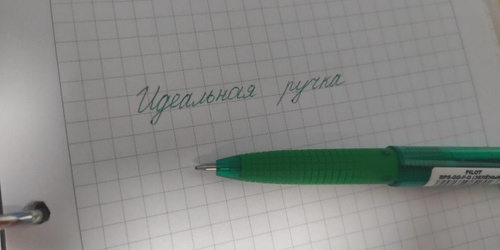 Идеальная ручка
PILOT